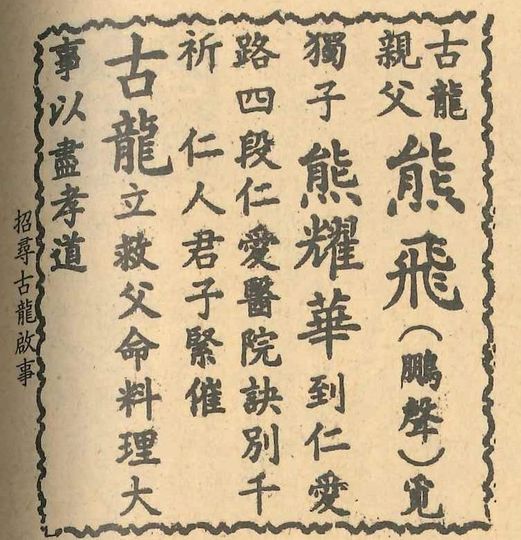 古龍
親父熊飛（鵬聲）覓
獨子熊耀華到仁愛
路四段仁愛醫院訣別千
祈　仁人君子緊催
古龍立救父命料理大
事以盡孝道
招尋古龍啟事